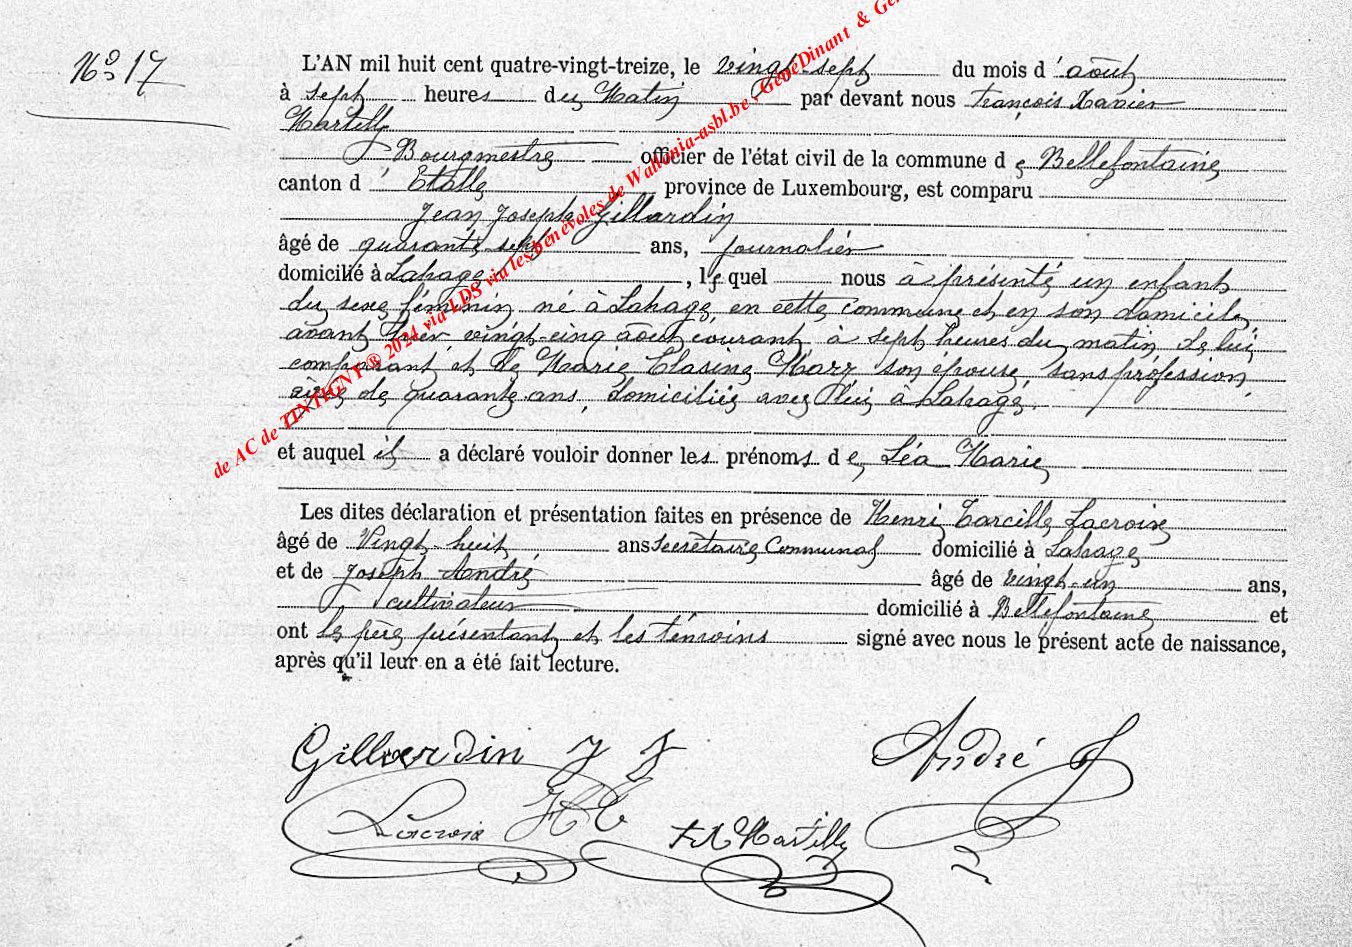 No 17
L'AN mil huit cent quatre-vingt-treize, le vingt-sept du mois d'août
à sept heures du Matin par devant nous François Xavier
Martilly
Bourgmestre officier de l'état civil de la commune de Bellefontaine
canton d'Etalle province de Luxembourg, est comparu
Jean Joseph Gillardin
âgé de quarante sept ans, journalier
domicilié à Lahage, lequel nous a présenté un enfant
du sexe féminin né à Lahage, en cette commune et en son domicile,
avant hier vingt-cinq août courant à sept heures du matin de lui
comparant et de Marie Marx son épouse, sans profession,
âgée de quarante ans, domiciliée avec lui à Lahage.
et auquel il a déclaré vouloir donner les prénoms de Léa Marie
Les dites déclaration et présentation faites en présence de Henri Tarcille Lacroix
âgé de Vingt huit ans Secrétaire Communal domicilié à Lahage
et de Joseph André âgé de vingt-un ans,
cultivateur domicilié à Bellefontaine et
ont le père présentant et les témoins signé avec nous le présent acte de naissance,
après qu'il leur en a été fait lecture.
Gillardin J J
André J
Lacroix HT
F X Martilly
de AC de TINTIGNY ® 2024 via LDS via les bénévoles de Wallonia-asbl.be , GeneDinant & Ge